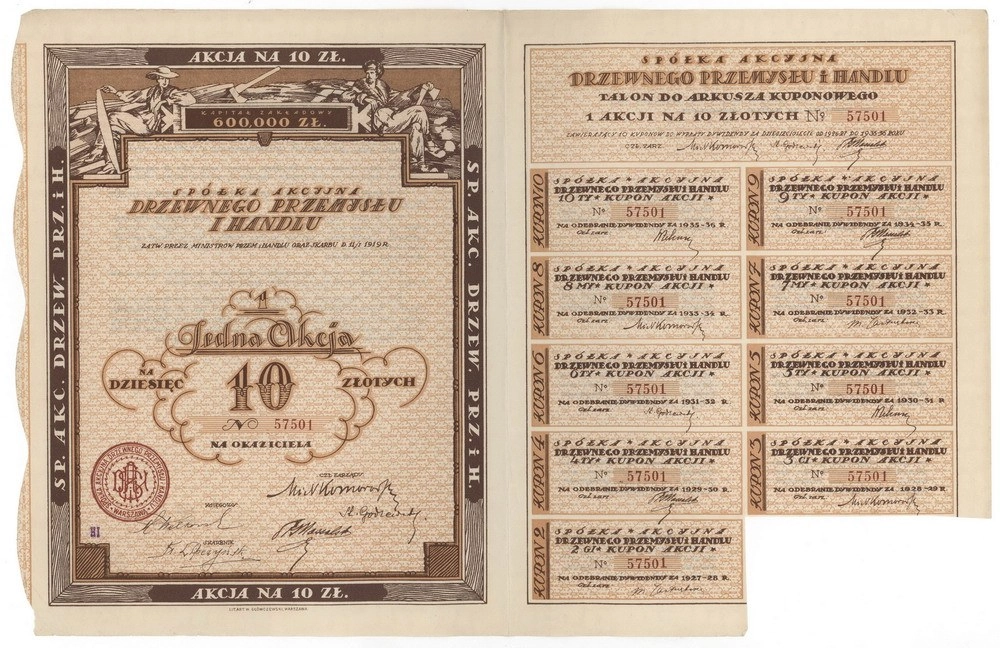 AKCJA NA 10 ZŁ.
KAPITAŁ ZAKŁADOWY
600,000 ZŁ.
SP. AKC. DRZEW. PRZ. i H.
SP. AKC. DRZEW. PRZ. i H.
SPÓŁKA AKCYJNA
DRZEWNEGO PRZEMYSŁU
I HANDLU
ZATW. PRZEZ MINISTRÓW PRZEM. i HANDLU ORAZ SKARBU D. 11/I 1919 R.
1
Jedna Akcja
NA
DZIESIĘĆ
10
ZŁOTYCH
No 57501
NA OKAZICIELA
CZŁ. ZARZĄDU
WARSZAWA
BUCHALTER
SKARBNIK
BI
AKCJA NA 10 ZŁ.
SPÓŁKA AKCYJNA
DRZEWNEGO PRZEMYSŁU i HANDLU
TALON DO ARKUSZA KUPONOWEGO
1 AKCJI NA 10 ZŁOTYCH No 57501
ZAWIERAJĄCY 10 KUPONÓW DO WYPŁATY DYWIDENDY ZA DZIESIĘCIOLECIE OD 1926-27 DO 1935-36 ROKU
CZŁ. ZARZ.
KUPON 10
SPÓŁKA * AKCYJNA
DRZEWNEGO PRZEMYSŁU i HANDLU
10 TY * KUPON AKCJI *
No 57501
NA ODEBRANIE DYWIDENDY ZA 1935-36 R.
Czł. zarz.
KUPON 9
SPÓŁKA * AKCYJNA
DRZEWNEGO PRZEMYSŁU i HANDLU
9 TY * KUPON AKCJI *
No 57501
NA ODEBRANIE DYWIDENDY ZA 1934-35 R.
Czł. zarz.
KUPON 8
SPÓŁKA * AKCYJNA
DRZEWNEGO PRZEMYSŁU i HANDLU
8 MY * KUPON AKCJI *
No 57501
NA ODEBRANIE DYWIDENDY ZA 1933-34 R.
Czł. zarz.
KUPON 7
SPÓŁKA * AKCYJNA
DRZEWNEGO PRZEMYSŁU i HANDLU
7 MY * KUPON AKCJI *
No 57501
NA ODEBRANIE DYWIDENDY ZA 1932-33 R.
Czł. zarz.
KUPON 6
SPÓŁKA * AKCYJNA
DRZEWNEGO PRZEMYSŁU i HANDLU
6 TY * KUPON AKCJI *
No 57501
NA ODEBRANIE DYWIDENDY ZA 1931-32 R.
Czł. zarz.
KUPON 5
SPÓŁKA * AKCYJNA
DRZEWNEGO PRZEMYSŁU i HANDLU
5 TY * KUPON AKCJI *
No 57501
NA ODEBRANIE DYWIDENDY ZA 1930-31 R.
Czł. zarz.
KUPON 4
SPÓŁKA * AKCYJNA
DRZEWNEGO PRZEMYSŁU i HANDLU
4 TY * KUPON AKCJI *
No 57501
NA ODEBRANIE DYWIDENDY ZA 1929-30 R.
Czł. zarz.
KUPON 3
SPÓŁKA * AKCYJNA
DRZEWNEGO PRZEMYSŁU i HANDLU
3 CI * KUPON AKCJI *
No 57501
NA ODEBRANIE DYWIDENDY ZA 1928-29 R.
Czł. zarz.
KUPON 2
SPÓŁKA * AKCYJNA
DRZEWNEGO PRZEMYSŁU i HANDLU
2 GI * KUPON AKCJI *
No 57501
NA ODEBRANIE DYWIDENDY ZA 1927-28 R.
Czł. zarz.